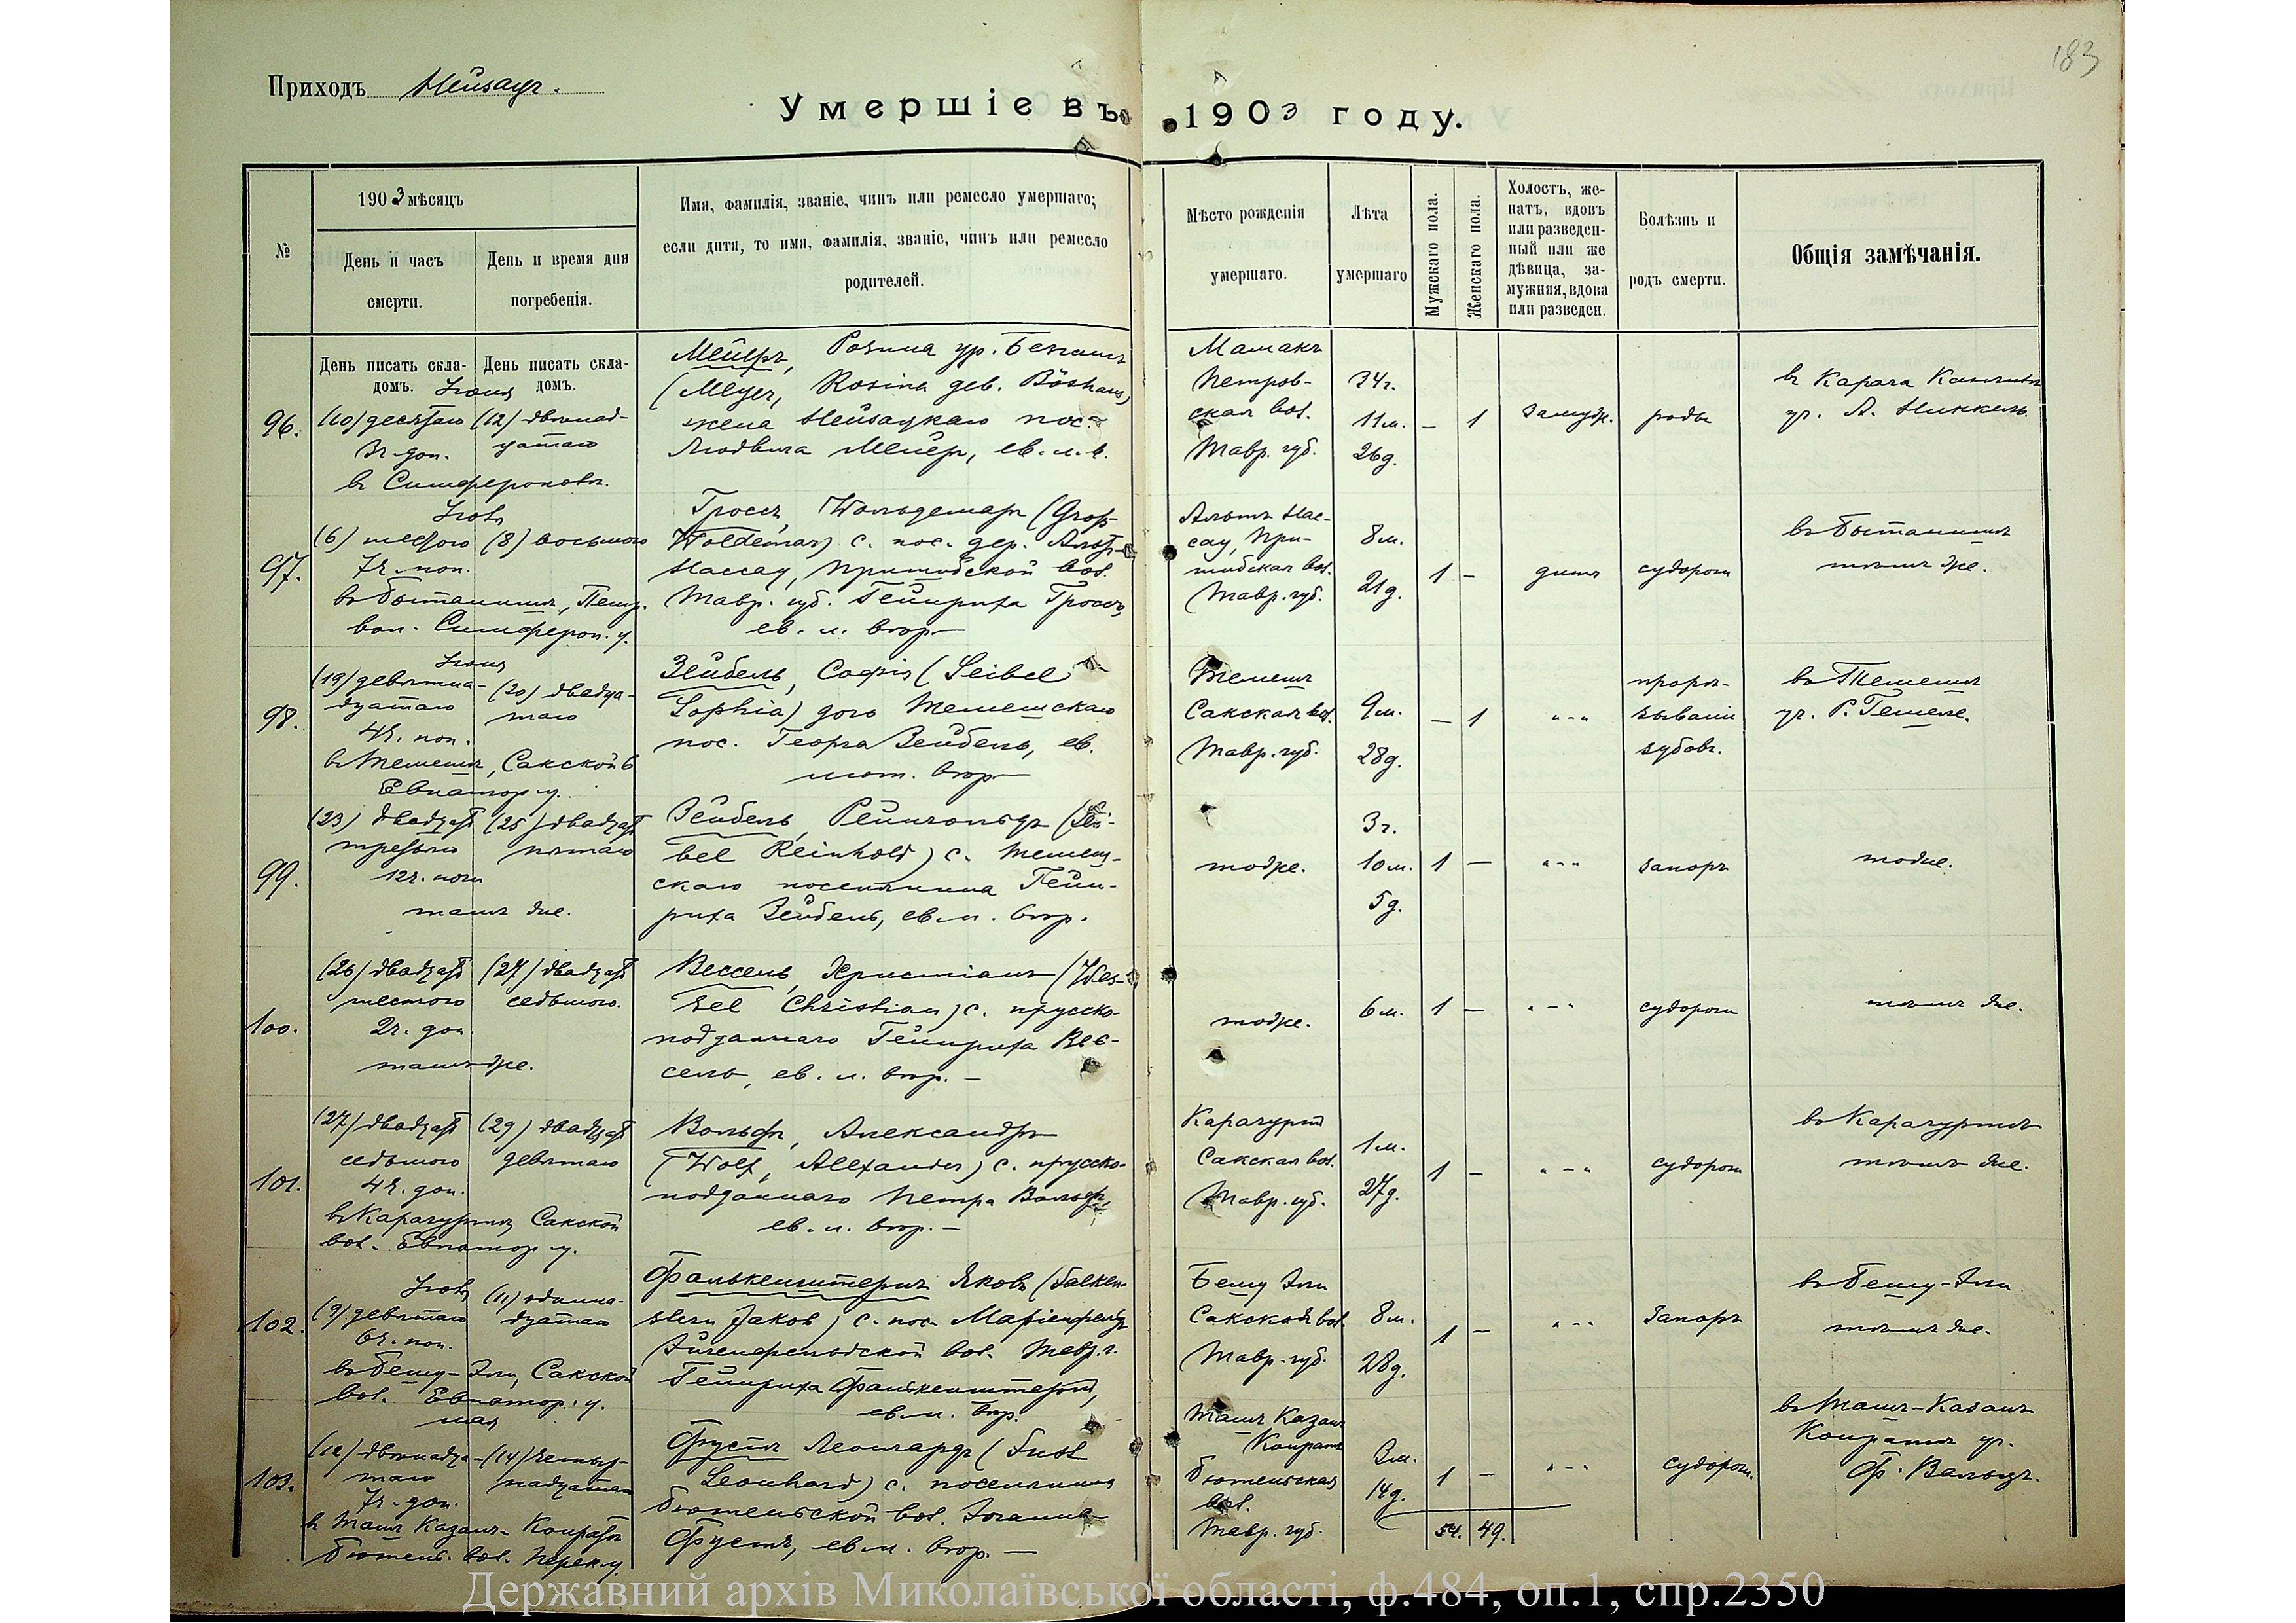 183
Приходъ Нейзацъ.
Умершіе въ 1903 году.
№
1903 мѣсяцъ
День и часъ смерти.
День и время дня погребенія.
Имя, фамилія, званіе, чинъ или ремесло умершаго;
если дитя, то имя, фамилія, званіе, чинъ или ремесло
родителей.
Мѣсто рожденія
умершаго.
Лѣта
умершаго
Мужскаго пола.
Женскаго пола.
Холостъ, же-
натъ, вдовъ
или разведен-
ный или же
дѣвица, за-
мужняя, вдова
или разведен.
Болѣзнь и
родъ смерти.
Общія замѣчанія.
День писать скла-
домъ.
День писать скла-
домъ.
96.
Іюня
(10) десятаго
3ч. доп.
въ Симферополѣ.
(12) двѣнад-
цатаго
Мейеръ, Розина ур.
(Meyer, Rosina geb. Böshans,
жена Нейзацкаго пос.
Людвига Мейеръ, ев. л. в.
Петров-
ская вол.
Тавр. губ.
34г.
11м.
26д.
—
1
замуж.
роды
уч. А. Никкель.
97.
(6) шестого
7ч. поп.
вол. Симфероп. у.
(8) восьмого
Гроссъ, Вольдемаръ (Groß
Woldemar) с. пос. дер. Альт-
Нассау, Пришибской вол.
Тавр. губ. Гейнриха Гроссъ,
ев. л. втор—
Альтъ Нас-
сау, При-
шибская вол.
Тавр. губ.
8м.
21д.
1
—
дитя
судороги
тамъ же.
98.
Іюня
(19) девятна-
дцатаго
4ч. поп.
въ Темешѣ, Сакской в.
Евпатор у.
(20) двадца-
таго
Зейбель, Софія (Seibel
Sophia) дочь Темешскаго
пос. Георга Зейбель, ев.
лют. втор—
Темешъ
Сакская вол.
Тавр. губ.
9м.
28д.
—
1
"-"
прорѣ-
зываніе
зубовъ.
въ Темешѣ
уч. Р. Гешеле.
99.
(23) двадцать
третьяго
12ч. ночи
тамъ же.
(25) двадцать
пятаго
Зейбель, Рейнгольдъ (Sei-
bel Reinhold) с. Темеш-
скаго поселянина Гейн-
риха Зейбель, ев. л. втор.
тоже.
3г.
10м.
5д.
1
—
"-"
запоръ
тоже.
100.
(26) двадцать
шестого
2ч. доп.
тамъ же.
(27) двадцать
седьмого.
Вессель, Христіанъ (Wes-
sel Christian) с. прусско-
подданнаго Гейнриха Вес-
сель, ев. л. втор. —
тоже.
6м.
1
—
"-"
судороги
тамъ же.
101.
(27) двадцать
седьмого
4ч. доп.
въ Карагуртѣ, Сакской
вол. Евпатор у.
(29) двадцать
девятаго
Вольфъ, Александръ
(Wolf, Alexander) с. прусско-
подданнаго Петра Вольфъ,
ев. л. втор. —
Карагуртъ
Сакская вол.
Тавр. губ.
1м.
27д.
1
—
"-"
судороги
въ Карагуртѣ
тамъ же.
102.
(9) девятаго
6ч. поп.
въ Бешу-Эли, Сакской
вол. Евпатор. у.
(11) одинна-
дцатаго
Фалькенштернъ Яковъ (Falken-
stern Jakob) с. пос. Маріенфельдъ
Эйгенфельдской вол. Тавр. г.
Гейнриха Фалькенштернъ,
ев. л. втор.
Бешу Эли
Сакская вол.
Тавр. губ.
8м.
28д.
1
—
"-"
запоръ
въ Бешу-Эли
тамъ же.
103.
мая
(12) двѣнадца-
таго
7ч. доп.
въ Ташъ Казанъ-Конратъ
Бютень. вол. Перек. у.
(14) четыр-
надцатаго
Фустъ Леонгардъ (Fust
Leonhard) с. поселянина
Бютеньской вол. Іоганна
Фустъ, ев. л. втор. —
Ташъ Казанъ
Конратъ
Бютеньская
вол.
Тавр. губ.
3м.
14д.
1
—
"-"
судороги.
въ Ташъ-Казанъ
Конратѣ уч.
Ф. Вальцъ.
54. 49.
Державний архів Миколаївської області, ф.484, оп.1, спр.2350